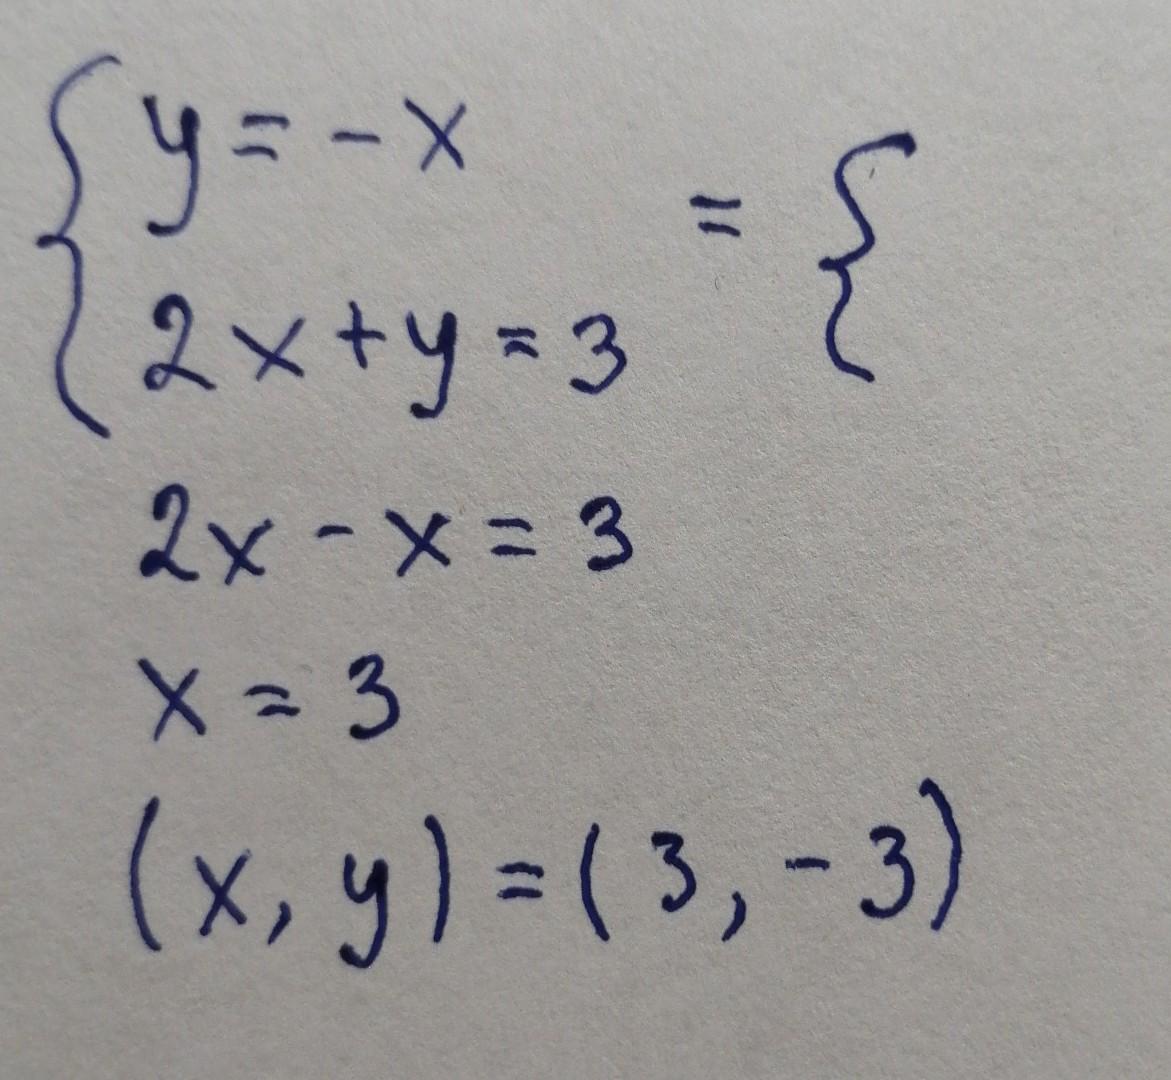 { y = - x
2x + y = 3 = {
2x - x = 3
x = 3
(x, y) = (3, -3)